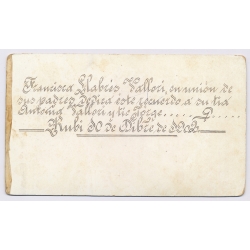 Francisca Llabres Vallori, en unión de
sus padres dedica este recuerdo a su tia
Antonia Vallori y tio Jorge
Rubi 30 de Cibre de